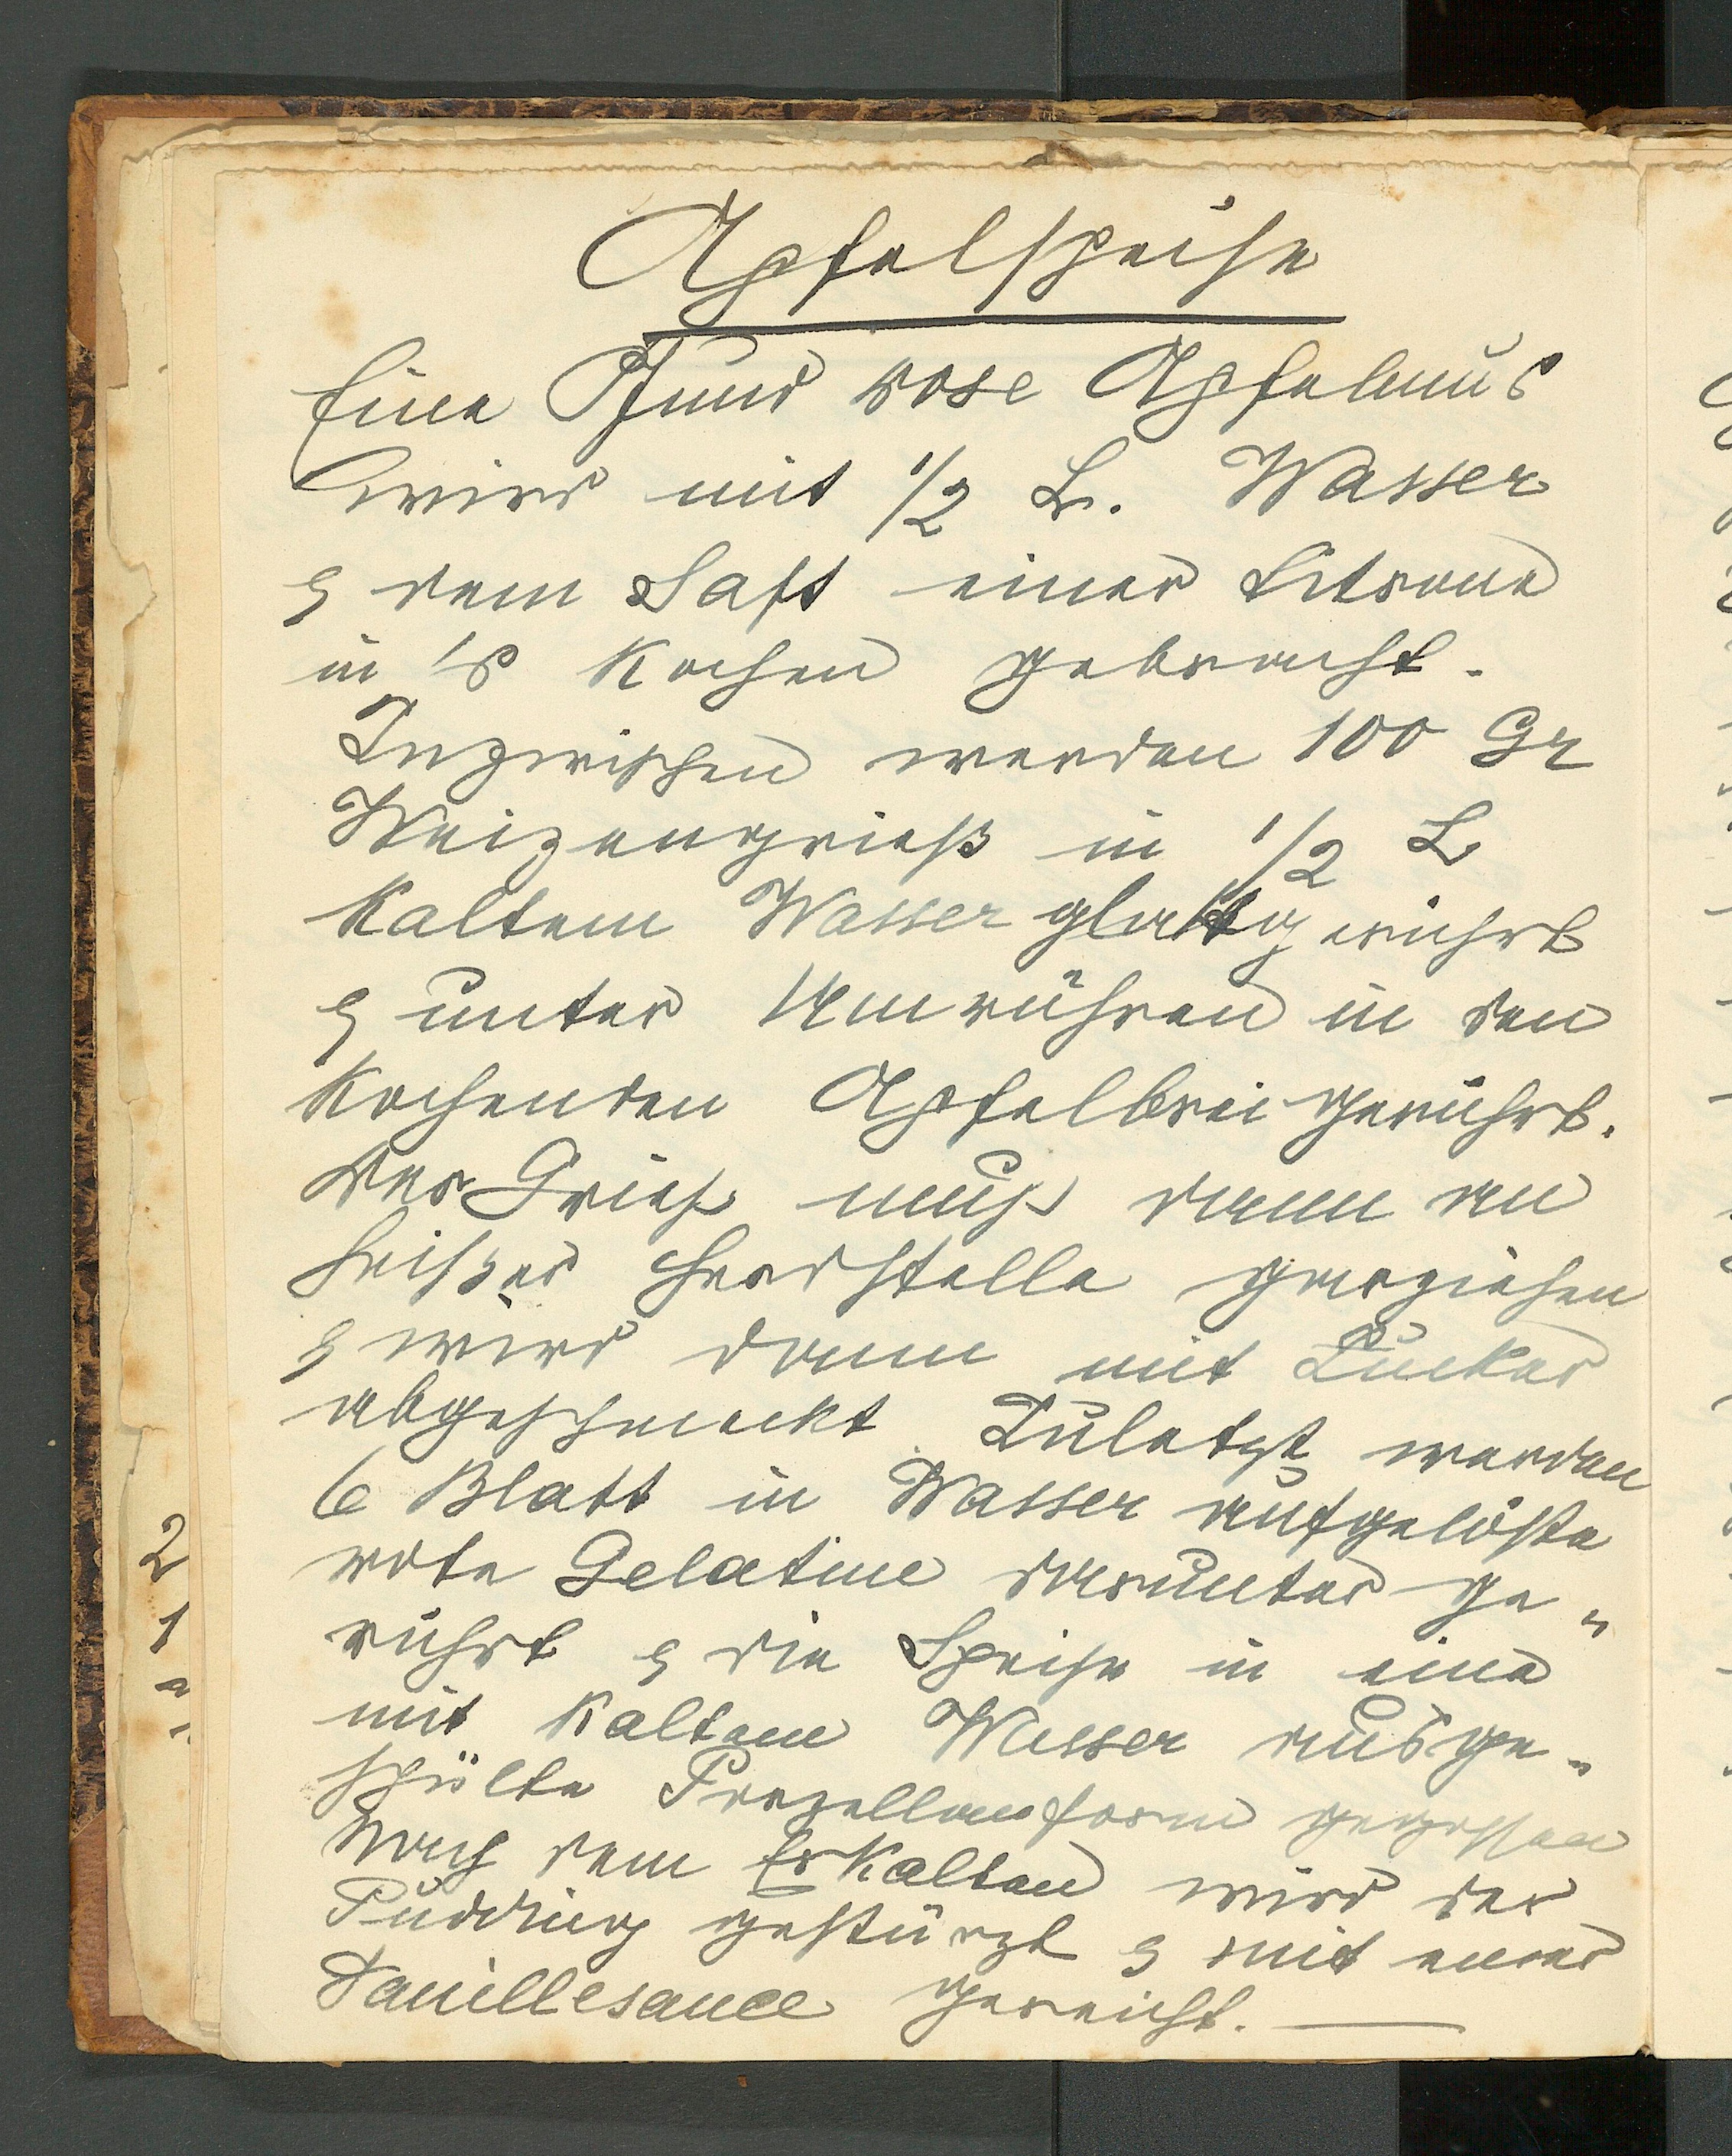 Apfelspeise
Eine Pfund rose Apfelmus
wird mit 1/2 L. Wasser
& dem Saft einer Citrone
in's Kochen gebracht.
Inzwischen werden 100 Gr
Weizengrieß in 1/2 L
kaltem Wasser glattgerührt
& unter Umrühren in den
kochenden Apfelbrei gerührt.
Der Grieß muß dann an
heißer Herdstelle garziehen
& wird dann mit Zucker
abgeschmeckt. Zuletzt werden
6 Blatt in Wasser aufgelöste
rote Gelatine darunter ge„
rührt & die Speise in eine
mit kaltem Wasser ausge„
spülte Prozellanform gegossen
Nach dem Erkalten wird der
Pudding gestürzt & mit einer
Vanillesauce gereicht. —
2
1